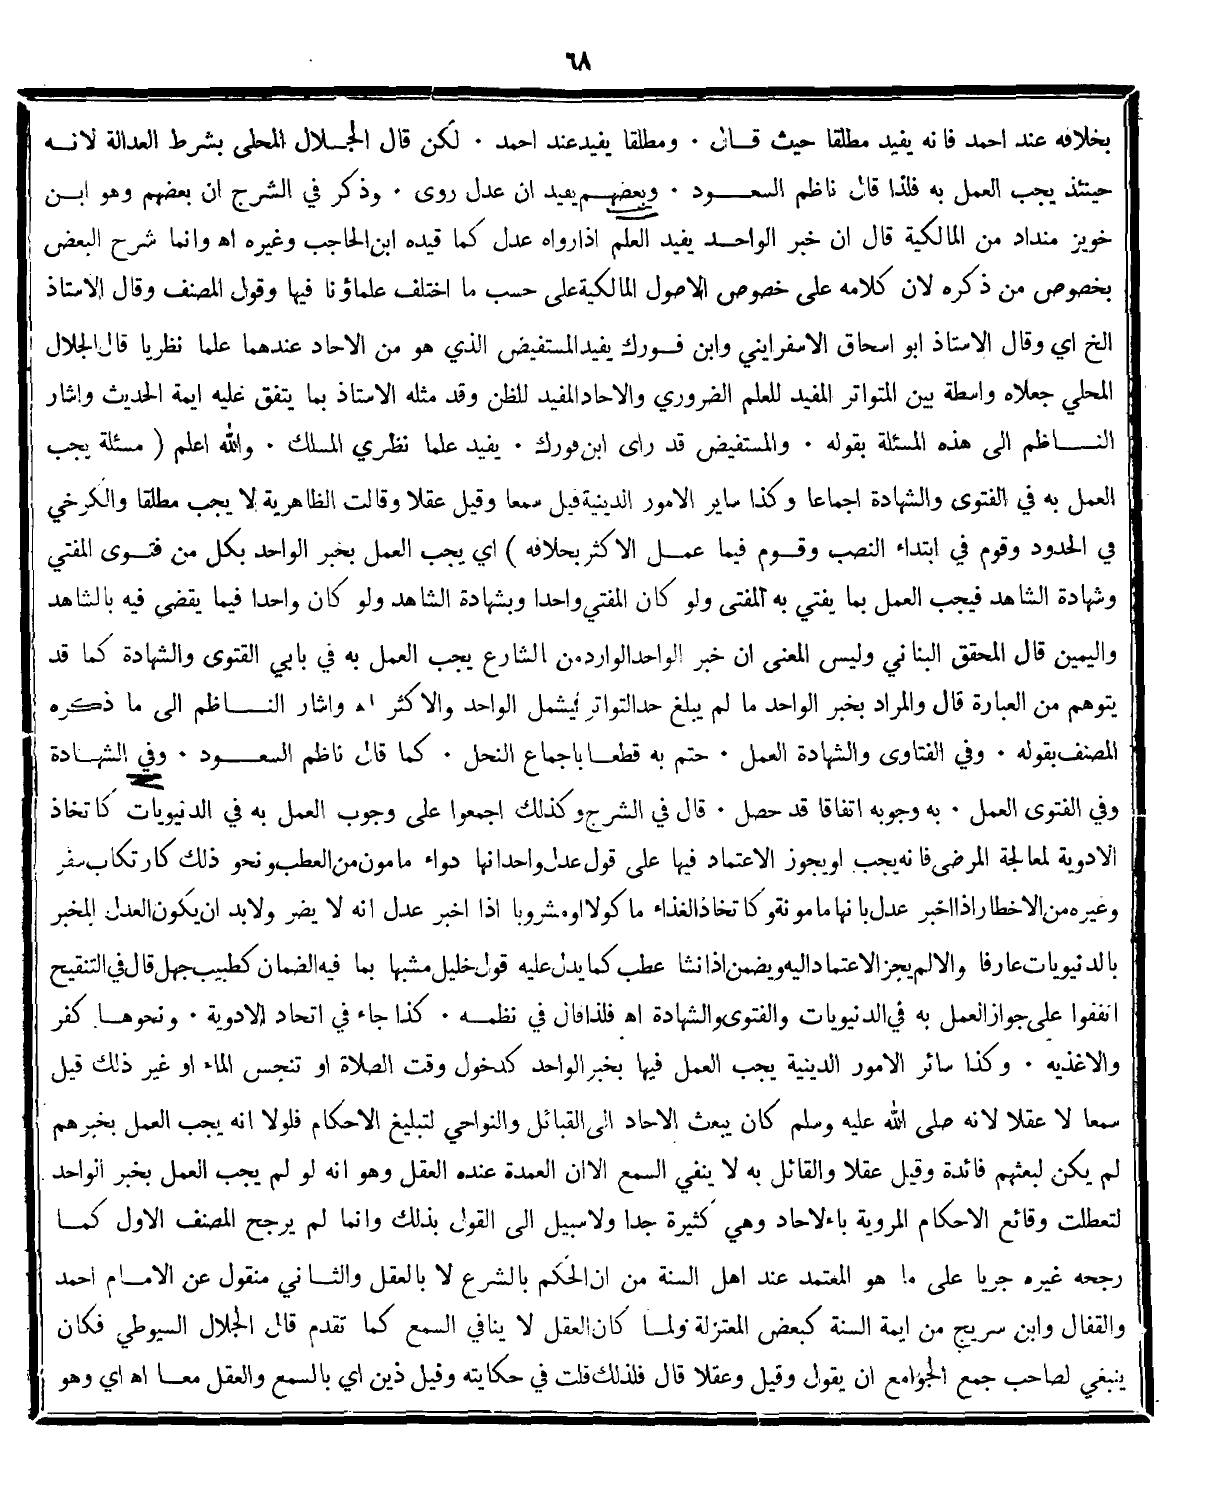 ٦٨
بخلافه عند احمد فانه يفيد مطلقا حيث قـال ٠ ومطلقا يفيد عند احمد ٠ لكن قال الجـلال المحلى بشرط العدالة لانـه
حينئذ يجب العمل به فلذا قال ناظم السعـود ٠ وبعضهم يفيد ان عدل روى ٠ وذكر في الشرح ان بعضهم وهو ابـن
خويز منداد من المالكية قال ان خبر الواحـد يفيد العلم اذا رواه عدل كما قيده ابن الحاجب وغيره اه وانما شرح البعض
بخصوص من ذكره لان كلامه على خصوص الاصول المالكية على حسب ما اختلف علماؤنا فيها وقول المصنف وقال الاستاذ
الخ اي وقال الاستاذ ابو اسحاق الاسفرايني وابن فـورك يفيد المستفيض الذي هو من الاحاد عندهما علما نظريا قال الجلال
المحلي جعلاه واسطة بين المتواتر المفيد للعلم الضروري والاحاد المفيد للظن وقد مثله الاستاذ بما يتفق عليه ايمة الحديث واشار
النـاظم الى هذه المسئلة بقوله ٠ والمستفيض قد راى ابن فورك ٠ يفيد علما نظري المسلك ٠ والله اعلم ( مسئلة يجب
العمل به في الفتوى والشهادة اجماعا وكذا ساير الامور الدينية قيل سمعا وقيل عقلا وقالت الظاهرية لا يجب مطلقا والكرخي
في الحدود وقوم في ابتداء النصب وقـوم فيما عمـل الاكثر بخلافه ) اي يجب العمل بخبر الواحد بكل من فتـوى المفتي
وشهادة الشاهد فيجب العمل بما يفتي به المفتى ولو كان المفتي واحدا وبشهادة الشاهد ولو كان واحدا فيما يقضى فيه بالشاهد
واليمين قال المحقق البناني وليس المعنى ان خبر الواحد الوارد من الشارع يجب العمل به في بابي الفتوى والشهادة كما قد
يتوهم من العبارة قال والمراد بخبر الواحد ما لم يبلغ حد التواتر فيشمل الواحد والاكثر اه واشار النـاظم الى ما ذكره
المصنف بقوله ٠ وفي الفتاوى والشهادة العمل ٠ حتم به قطعـا باجماع النحل ٠ كما قال ناظم السعـود ٠ وفي الشهـادة
وفي الفتوى العمل ٠ به وجوبه اتفاقا قد حصل ٠ قال في الشرح وكذلك اجمعوا على وجوب العمل به في الدنيويات كاتخاذ
الادوية لمعالجة المرضى فانه يجب او يجوز الاعتماد فيها على قول عدل واحد انها دواء مامون من العطب ونحو ذلك كارتكاب سفر
وغيره من الاخطار اذا اخبر عدل بانها مامونة وكاتخاذ الغذاء ماكولا او مشروبا اذا اخبر عدل انه لا يضر ولابد ان يكون العدل المخبر
بالدنيويات عارفا والا لم يجز الاعتماد اليه ويضمن اذا نشا عطب كما يدل عليه قول خليل مشبها بما فيه الضمان كطبيب جهل قال في التنقيح
اتفقوا على جواز العمل به في الدنيويات والفتوى والشهادة اه فلذا قال في نظمـه ٠ كذا جاء في اتحاد الادوية ٠ ونحوهـا كفر
والاغذيه ٠ وكذا سائر الامور الدينية يجب العمل فيها بخبر الواحد كدخول وقت الصلاة او تنجس الماء او غير ذلك قيل
سمعا لا عقلا لانه صلى الله عليه وسلم كان يبعث الاحاد الى القبائل والنواحي لتبليغ الاحكام فلولا انه يجب العمل بخبرهم
لم يكن لبعثهم فائدة وقيل عقلا والقائل به لا ينفي السمع الا ان العمدة عنده العقل وهو انه لو لم يجب العمل بخبر الواحد
لتعطلت وقائع الاحكام المروية بالاحاد وهي كثيرة جدا ولا سبيل الى القول بذلك وانما لم يرجح المصنف الاول كمـا
رجحه غيره جريا على ما هو المعتمد عند اهل السنة من ان الحكم بالشرع لا بالعقل والثـاني منقول عن الامـام احمد
والقفال وابن سريج من ايمة السنة كبعض المعتزلة ولمـا كان العقل لا ينافي السمع كما تقدم قال الجلال السيوطي فكان
ينبغي لصاحب جمع الجوامع ان يقول وقيل وعقلا قال فلذلك قلت في حكايته وقيل ذين اي بالسمع والعقل معـا اه اي وهو